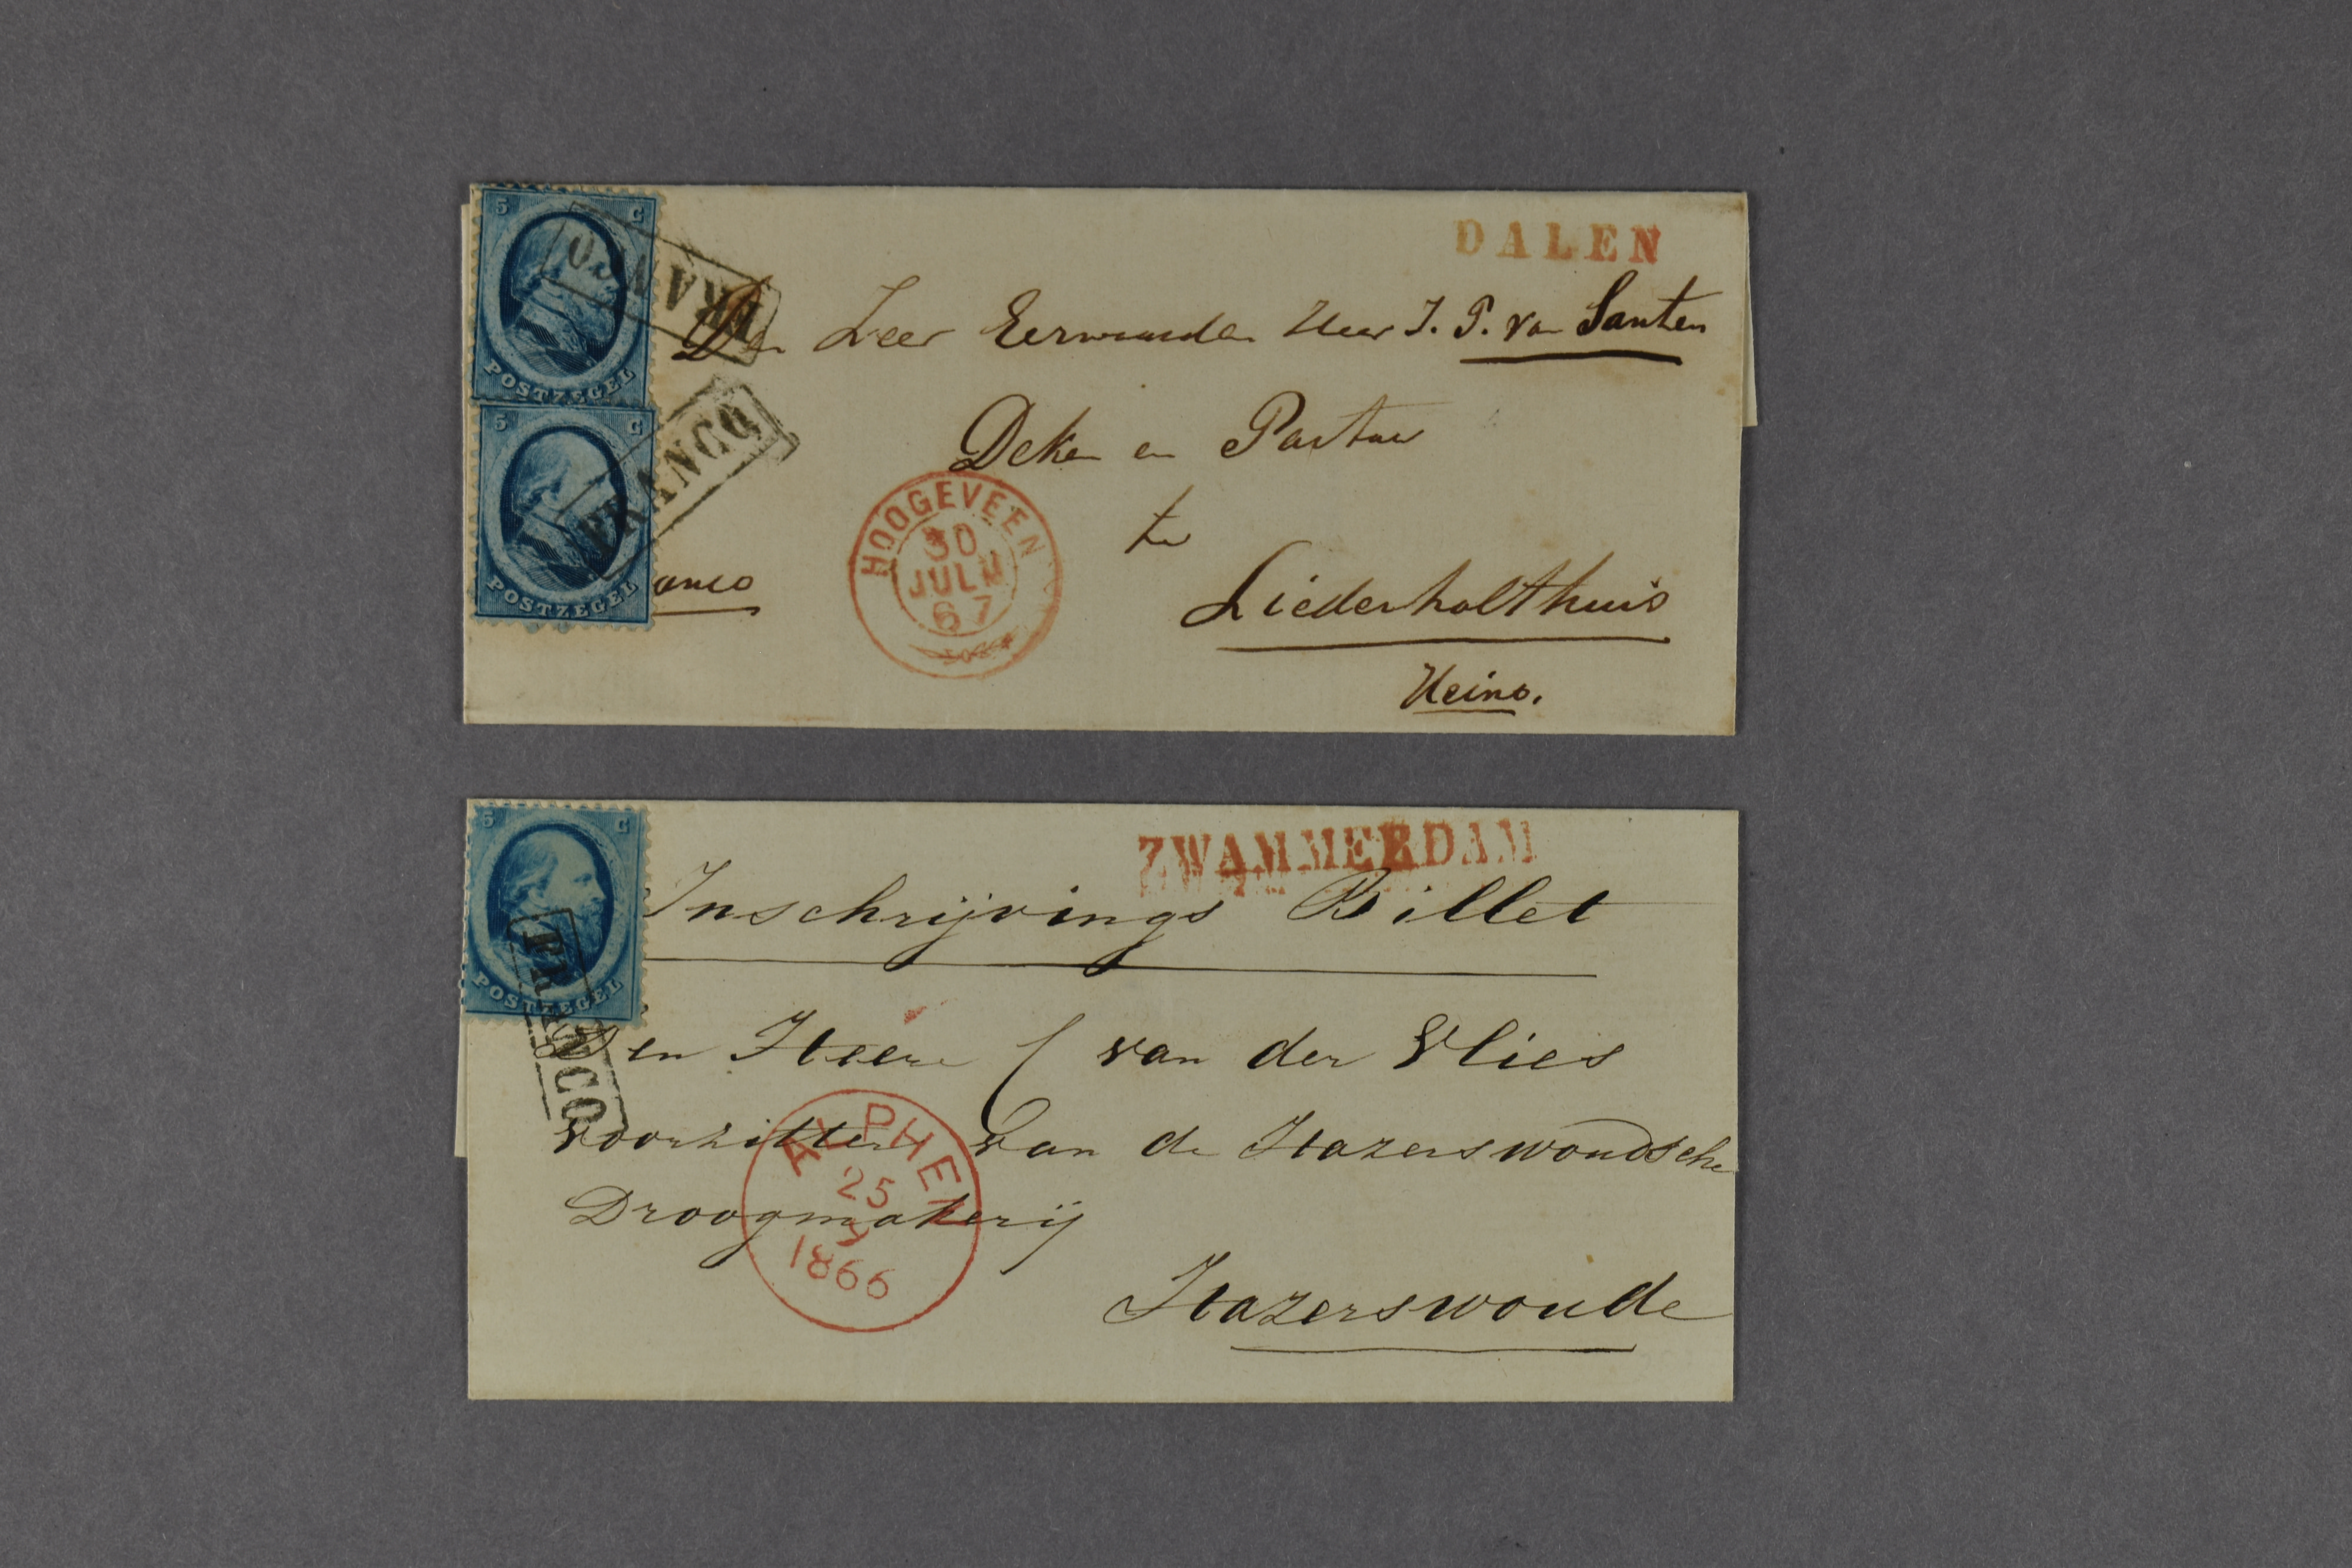 5 C
POSTZEGEL
FRANCO
5 C
POSTZEGEL
FRANCO
DALEN
Den Zeer Eerwaarden Heer J. P. van Santen
Deken en Pastoor
te
Liederholthuis
Heino.
anco
HOOGEVEEN
30
JULIJ
67
5 C
POSTZEGEL
FRANCO
ZWAMMERDAM
Inschrijvings Billet
Den Heere C van der Vlies
voorzitter van de Hazerswoudsche
Droogmakerij
Hazerswoude
ALPHEN
25
1866